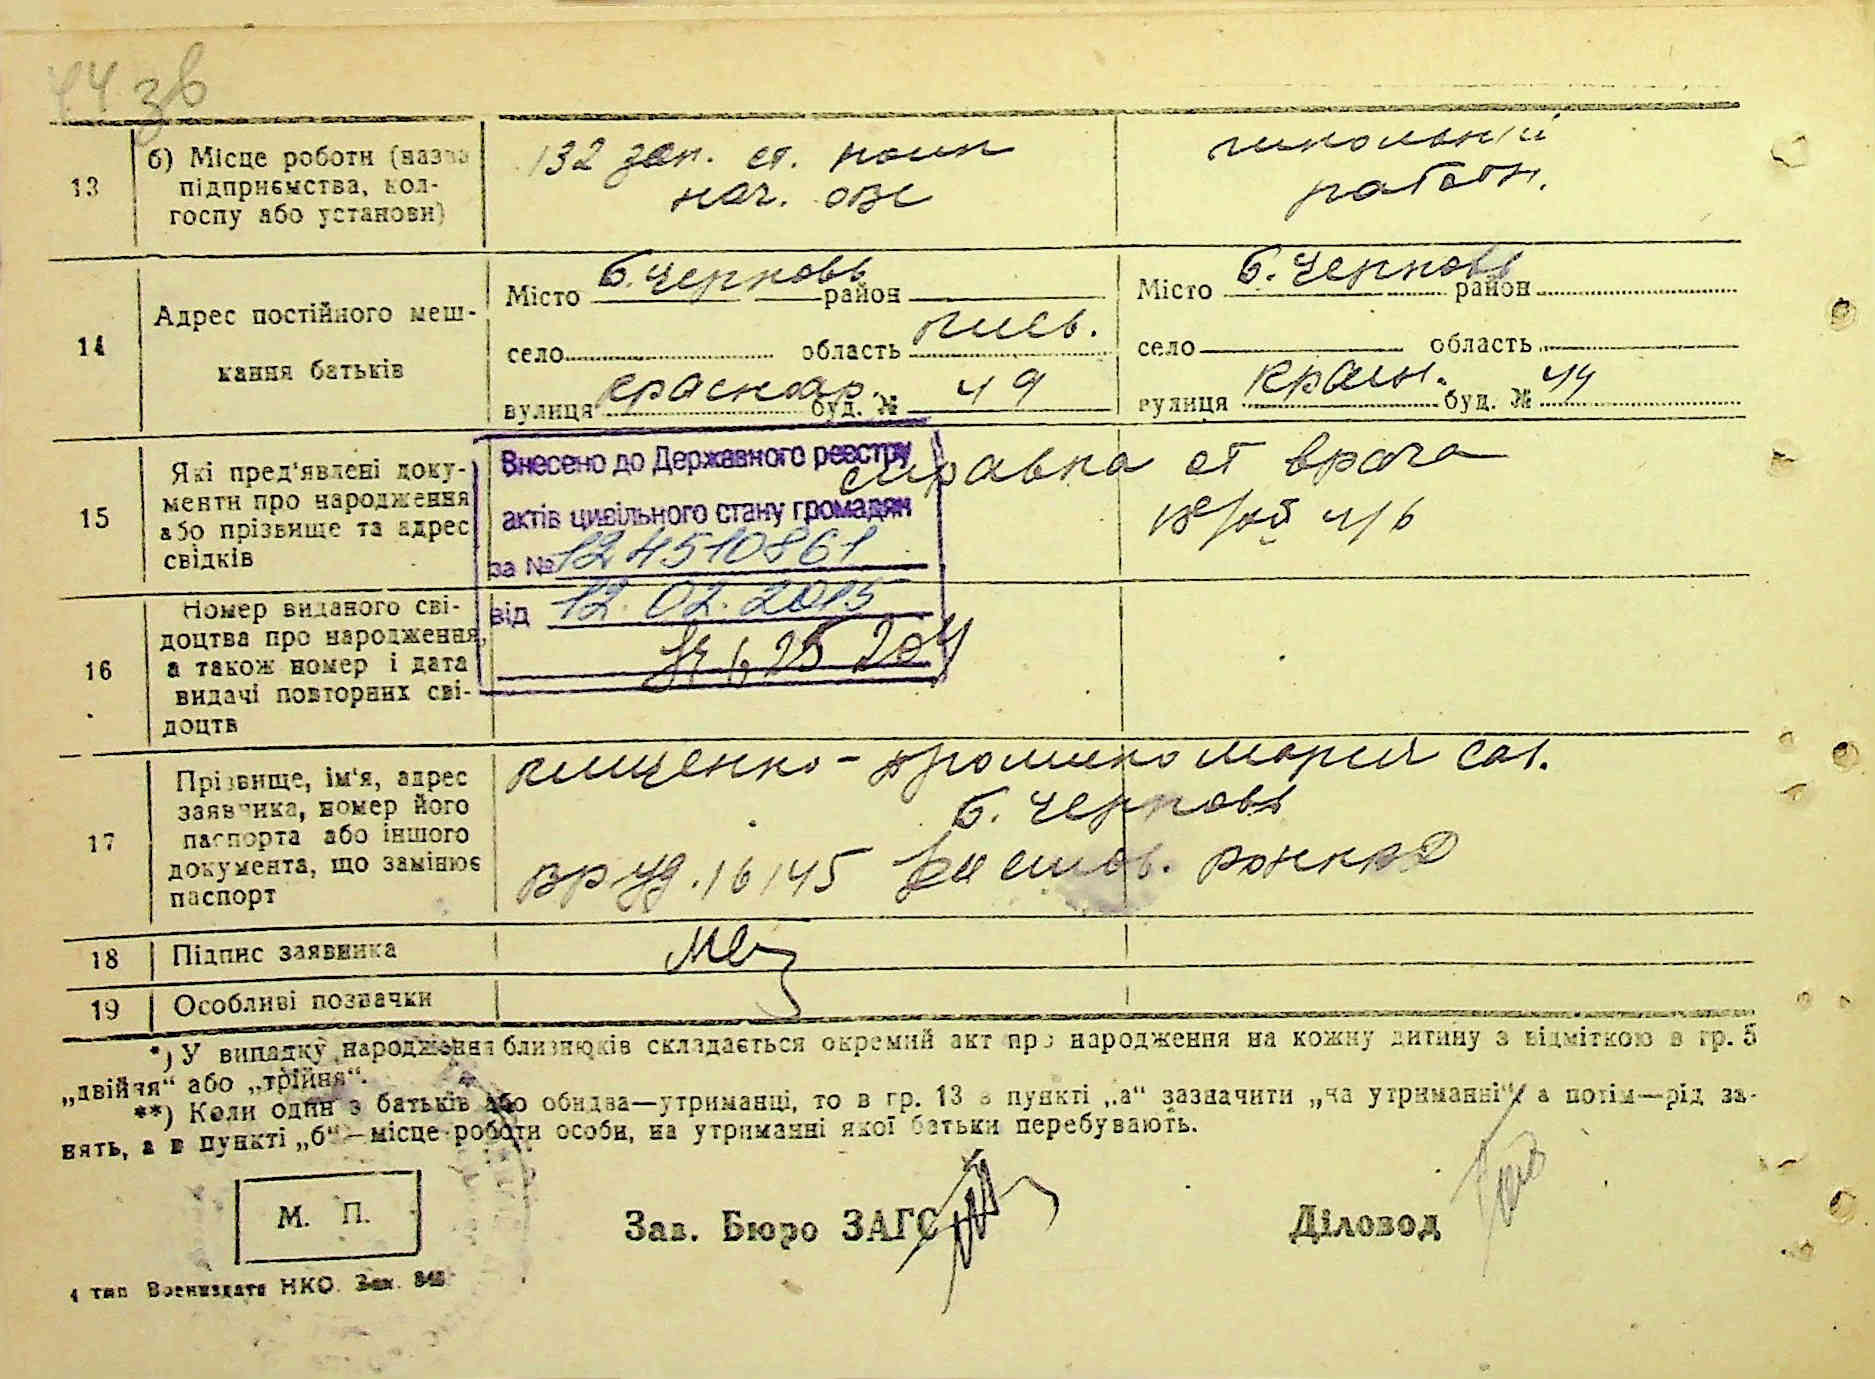 44 зв
13
б) Місце роботи (назва
підприємства, кол-
госпу або установи)
132 зап. ст. полк
нач. ОВС
школьний
работн.
14
Адрес постійного меш-
кання батьків
Місто б. Черновь район
село область
вулиця Красноар. буд. № 49
Місто б. Черновь район
село область
вулиця буд. № 44
15
Які пред'явлені доку-
менти про народження
або прізвище та адрес
свідків
справка от врача
Внесено до Державного реєстру
актів цивільного стану громадян
за № 124510861
від 12.02.2015
16
Номер виданого сві-
доцтва про народження,
а також номер і дата
видачі повторних сві-
доцтв
17
Прізвище, ім'я, адрес
заявника, номер його
паспорта або іншого
документа, що замінює
паспорт
Марія
б. Черновь
вр уд. 16145
18
Підпис заявника
19
Особливі позначки
*) У випадку народження близнюків складається окремий акт про народження на кожну дитину з відміткою в гр. 5
„двійня“ або „трійня“.
**) Коли один з батьків або обидва—утриманці, то в гр. 13 в пункті „а“ зазначити „на утриманні“, а потім—рід за-
нять, а в пункті „б“—місце роботи особи, на утриманні якої батьки перебувають.
М. П.
Зав. Бюро ЗАГС
Діловод
4 тип Воениздата НКО. Зак. 848